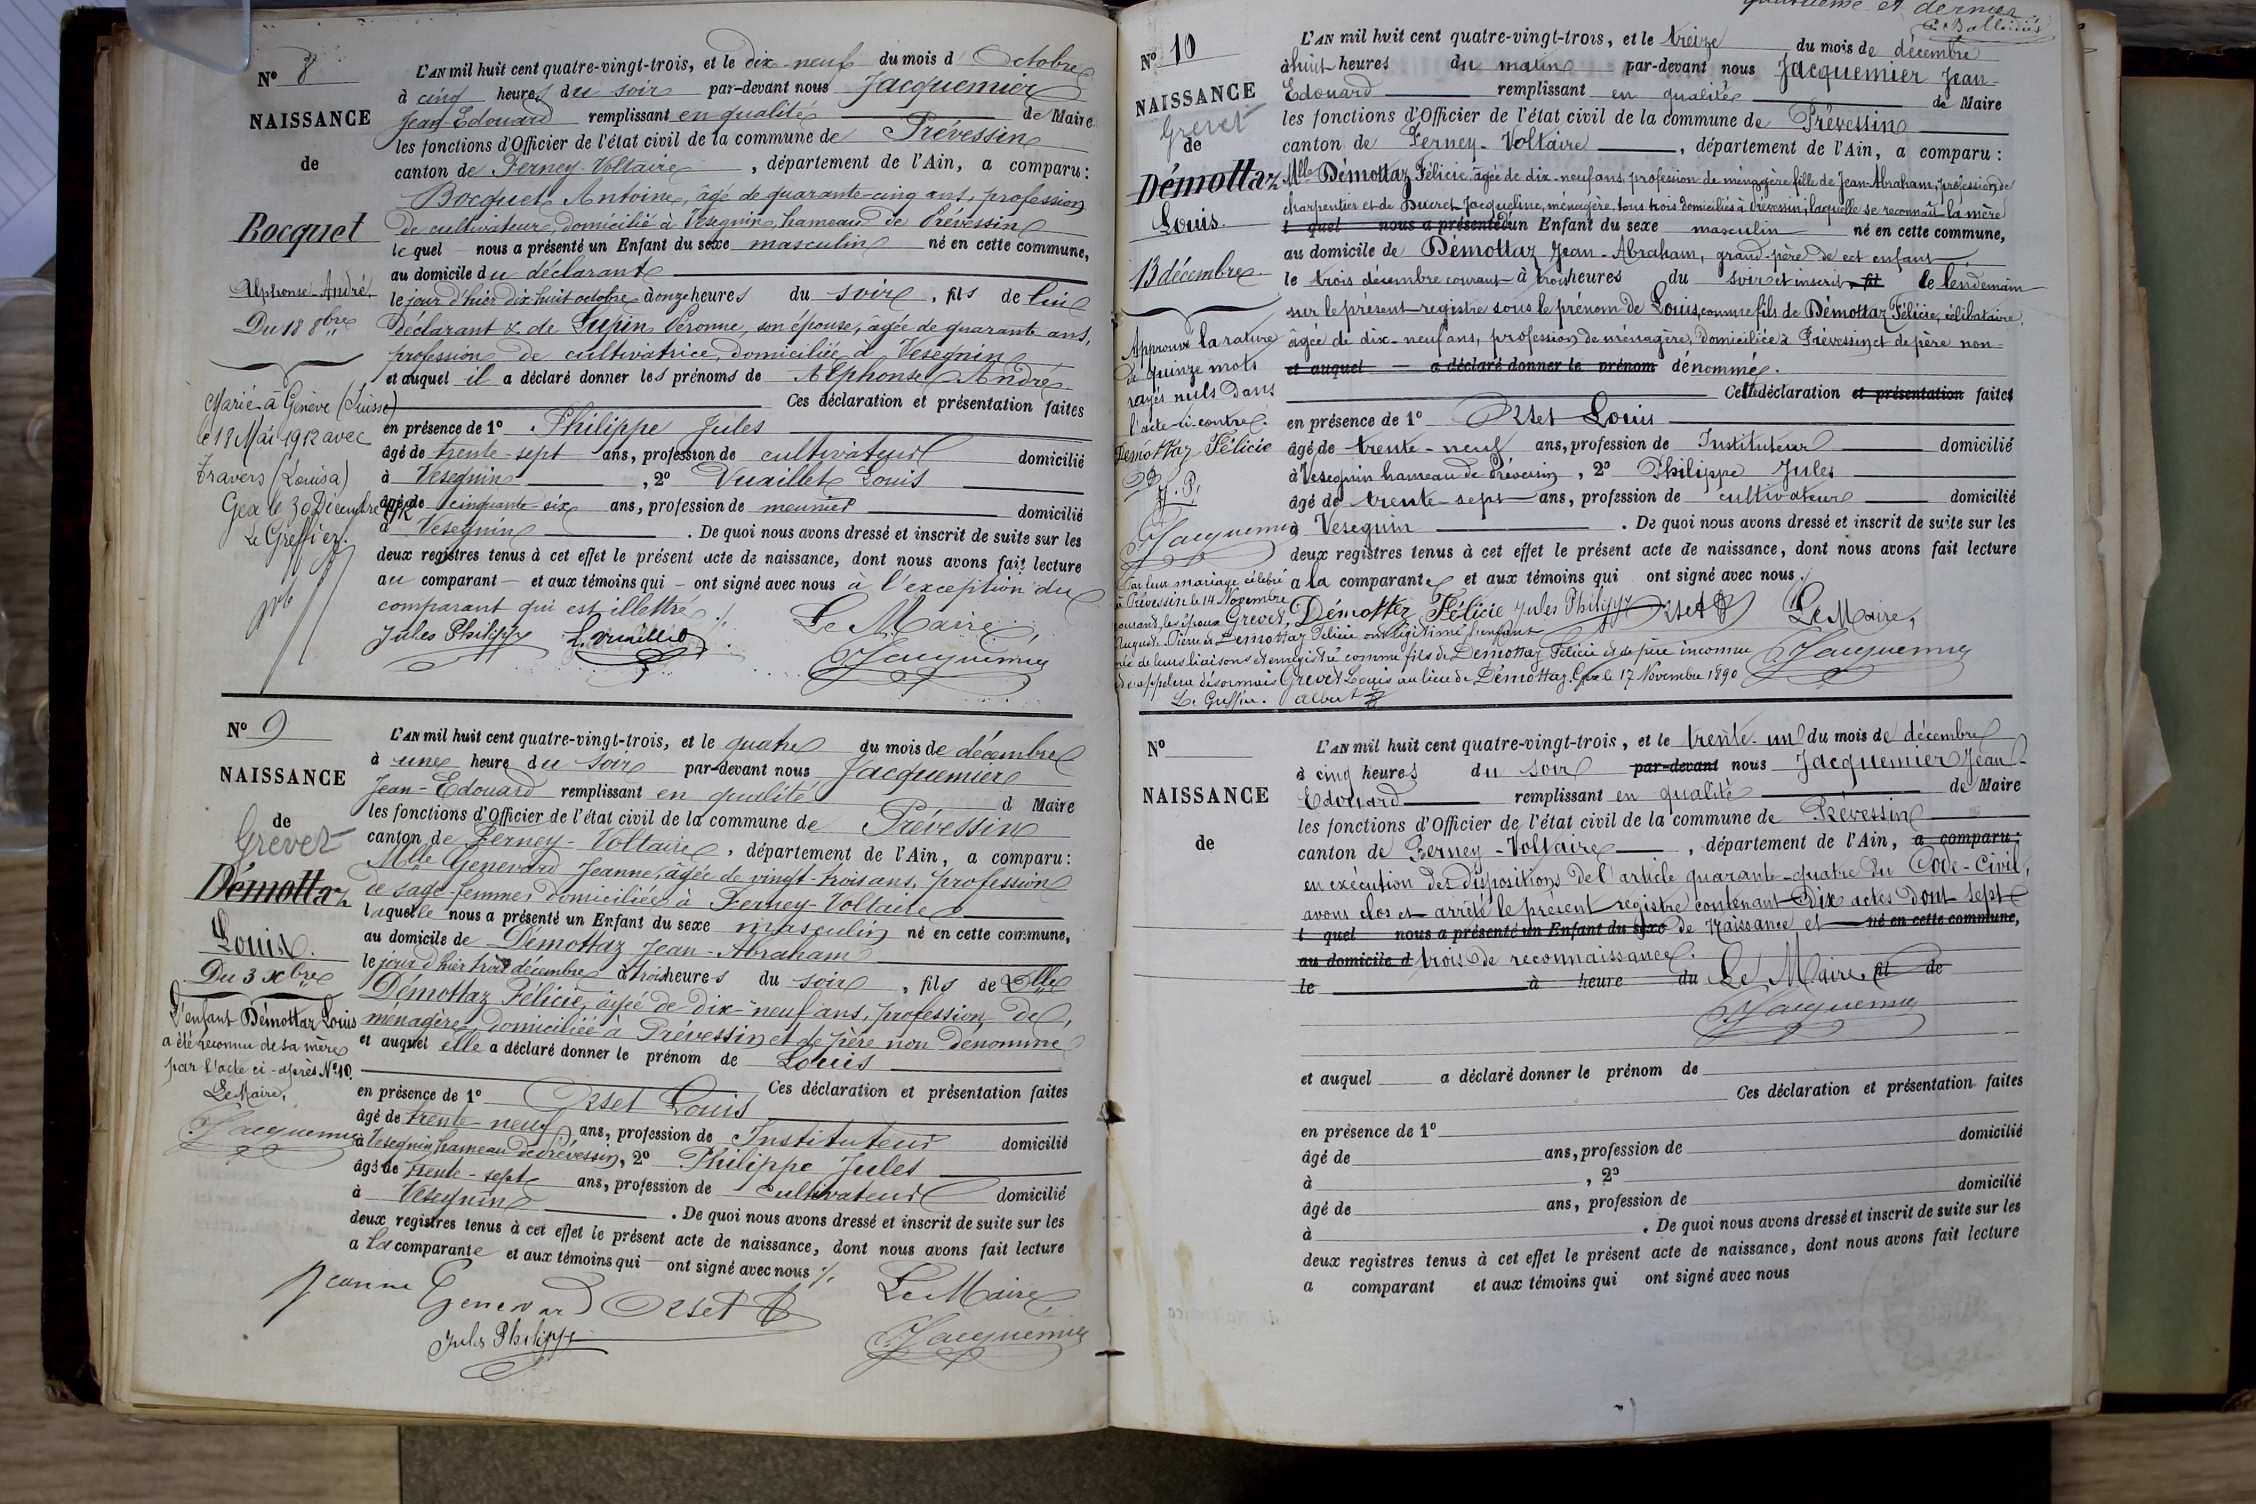 N° 8
NAISSANCE
de
Bocquet
Alphonse André
Du 18 8bre
Marié à Genève (Suisse)
le 18 Mai 1912 avec
Travers (Louisa)
Gex le 30 Décembre
Le Greffier.
L'AN mil huit cent quatre-vingt-trois, et le dix-neuf du mois d'Octobre
à cinq heures du soir par-devant nous Jacquemier
Jean Edouard remplissant en qualité de Maire
les fonctions d'Officier de l'état civil de la commune de Prévessin
canton de Ferney-Voltaire, département de l'Ain, a comparu:
Bocquet Antoine, âgé de quarante-cinq ans, profession
de cultivateur, domicilié à Vesegnin, hameau de Prévessin
lequel nous a présenté un Enfant du sexe masculin né en cette commune,
au domicile du déclarant
le jour d'hier dix huit octobre à onze heures du soir, fils de lui
déclarant & de Lupin Péronne, son épouse, âgée de quarante ans,
profession de cultivatrice, domiciliée à Vesegnin
et auquel il a déclaré donner les prénoms de Alphonse André
Ces déclaration et présentation faites
en présence de 1° Philippe Jules
âgé de trente-sept ans, profession de cultivateur domicilié
à Vesegnin, 2° Vuaillet Louis
âgé de cinquante-six ans, profession de meunier domicilié
à Vesegnin. De quoi nous avons dressé et inscrit de suite sur les
deux registres tenus à cet effet le présent acte de naissance, dont nous avons fait lecture
au comparant et aux témoins qui ont signé avec nous à l'exception du
comparant qui est illettré ./.
Le Maire,
Jules Philippe L. Vuaillet Jacquemier
N° 9
NAISSANCE
de
Grevet
Démottaz
Louis.
Du 3 Xbre
L'enfant Démottaz Louis
a été reconnu de sa mère
par l'acte ci-après N° 10.
Le Maire,
Jacquemier
L'AN mil huit cent quatre-vingt-trois, et le quatre du mois de décembre
à une heure du soir par-devant nous Jacquemier
Jean-Edouard remplissant en qualité d Maire
les fonctions d'Officier de l'état civil de la commune de Prévessin
canton de Ferney-Voltaire, département de l'Ain, a comparu:
Mlle Genevard Jeanne, âgée de vingt-trois ans, profession
de sage-femme, domiciliée à Ferney-Voltaire
laquelle nous a présenté un Enfant du sexe masculin né en cette commune,
au domicile de Démottaz Jean-Abraham
le jour d'hier trois décembre à trois heures du soir, fils de Mlle
Démottaz Félicie, âgée de dix-neuf ans, profession de
ménagère, domiciliée à Prévessin et de père non dénommé
et auquel elle a déclaré donner le prénom de Louis
Ces déclaration et présentation faites
en présence de 1° Orset Louis
âgé de trente-neuf ans, profession de Instituteur domicilié
à Vesegnin hameau de Prévessin, 2° Philippe Jules
âgé de trente-sept ans, profession de cultivateur domicilié
à Vesegnin. De quoi nous avons dressé et inscrit de suite sur les
deux registres tenus à cet effet le présent acte de naissance, dont nous avons fait lecture
a la comparante et aux témoins qui ont signé avec nous ./.
Jeanne Genevard Orset Le Maire
Jules Philippe Jacquemier
quatrième et dernier
N° 10
NAISSANCE
Grevet
de
Démottaz
Louis.
13 décembre
Approuvé la rature
de quinze mots
rayés nuls dans
l'acte ci-contre.
Démottaz Félicie
J. P.
Jacquemier
L'AN mil huit cent quatre-vingt-trois, et le treize du mois de décembre
à huit heures du matin par-devant nous Jacquemier Jean-
Edouard remplissant en qualité de Maire
les fonctions d'Officier de l'état civil de la commune de Prévessin
canton de Ferney-Voltaire, département de l'Ain, a comparu:
Mlle Démottaz Félicie, âgée de dix-neuf ans, profession de ménagère, fille de Jean-Abraham, profession de
charpentier et de Ducret Jacqueline, ménagère, tous trois domiciliés à Prévessin, laquelle se reconnaît la mère
l quel nous a présenté d'un Enfant du sexe masculin né en cette commune,
au domicile de Démottaz Jean-Abraham, grand-père de cet enfant
le trois décembre courant à trois heures du soir et inscrit fil de le lendemain
sur le présent registre sous le prénom de Louis, comme fils de Démottaz Félicie, célibataire,
âgée de dix-neuf ans, profession de ménagère, domiciliée à Prévessin et de père non-
et auquel a déclaré donner le prénom dénommé.
Cette déclaration et présentation faites
en présence de 1° Orset Louis
âgé de trente-neuf ans, profession de Instituteur domicilié
à Vesegnin hameau de Prévessin, 2° Philippe Jules
âgé de trente-sept ans, profession de cultivateur domicilié
à Vesegnin. De quoi nous avons dressé et inscrit de suite sur les
deux registres tenus à cet effet le présent acte de naissance, dont nous avons fait lecture
a la comparante et aux témoins qui ont signé avec nous.
Démottaz Félicie Jules Philippe Orset Le Maire,
Jacquemier
Par leur mariage célébré
à Prévessin le 14 Novembre
courant, les époux Grevet,
Auguste Pierre et Démottaz Félicie ont légitimé l'enfant
né de leurs liaisons et enregistré comme fils de Démottaz Félicie et de père inconnu
Il s'appelera désormais Grevet Louis au lieu de Démottaz. Gex le 17 Novembre 1890
Le Greffier.
N°
NAISSANCE
de
L'AN mil huit cent quatre-vingt-trois, et le trente-un du mois de décembre
à cinq heures du soir par-devant nous Jacquemier Jean-
Edouard remplissant en qualité de Maire
les fonctions d'Officier de l'état civil de la commune de Prévessin
canton de Ferney-Voltaire, département de l'Ain, a comparu:
en exécution des dispositions de l'article quarante-quatre du Code-Civil,
avons clos et arrêté le présent registre contenant Dix actes dont sept
l quel nous a présenté un Enfant du sexe de Naissance et né en cette commune,
au domicile d trois de reconnaissance.
le à heure du Le Maire, fil de
Jacquemier
et auquel a déclaré donner le prénom de
Ces déclaration et présentation faites
en présence de 1°
âgé de ans, profession de domicilié
à , 2°
âgé de ans, profession de domicilié
à . De quoi nous avons dressé et inscrit de suite sur les
deux registres tenus à cet effet le présent acte de naissance, dont nous avons fait lecture
a comparant et aux témoins qui ont signé avec nous